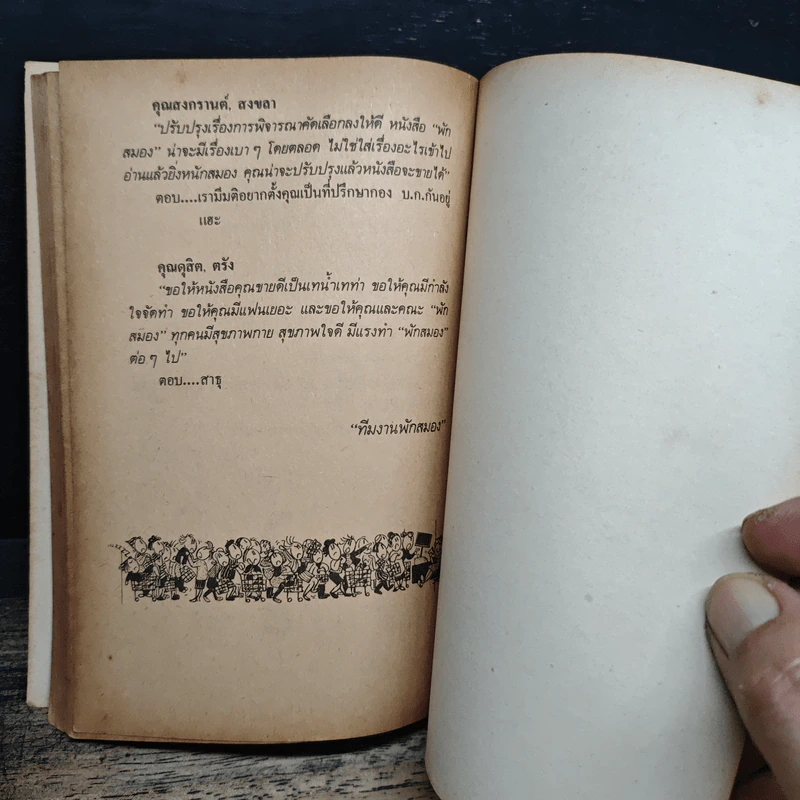 คุณสงกรานต์, สงขลา
“ปรับปรุงเรื่องการพิจารณาคัดเลือกลงให้ดี หนังสือ “พัก
สมอง” น่าจะมีเรื่องเบา ๆ โดยตลอด ไม่ใช่ใส่เรื่องอะไรเข้าไป
อ่านแล้วยิ่งหนักสมอง คุณน่าจะปรับปรุงแล้วหนังสือจะขายได้”
ตอบ....เรามีมติอยากตั้งคุณเป็นที่ปรึกษากอง บ.ก.กันอยู่
แฮะ
คุณดุสิต, ตรัง
“ขอให้หนังสือคุณขายดีเป็นเทน้ำเทท่า ขอให้คุณมีกำลัง
ใจจัดทำ ขอให้คุณมีแฟนเยอะ และขอให้คุณและคณะ “พัก
สมอง” ทุกคนมีสุขภาพกาย สุขภาพใจดี มีแรงทำ “พักสมอง”
ต่อ ๆ ไป”
ตอบ....สาธุ
“ทีมงานพักสมอง”